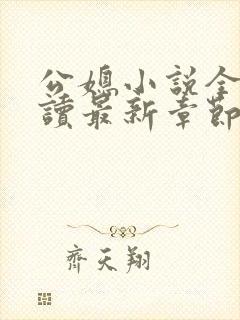 公媳小説全
讀最新章節
齊天翔